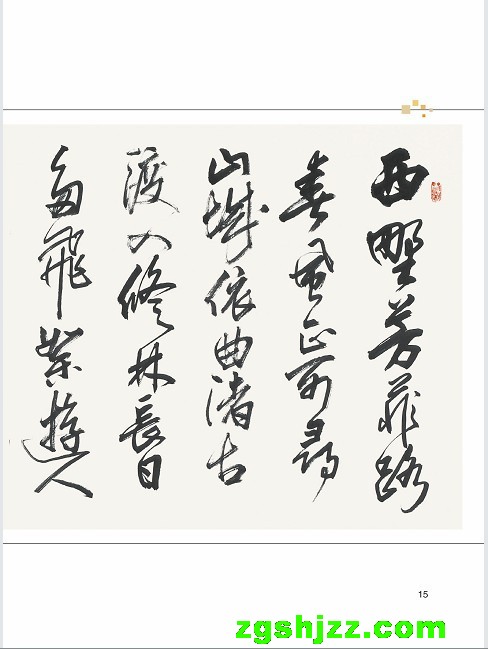 西野芳菲路
春風正可尋
山城依曲渚古
渡入修林長日
多飛絮遊人
15
zgshjzz.com